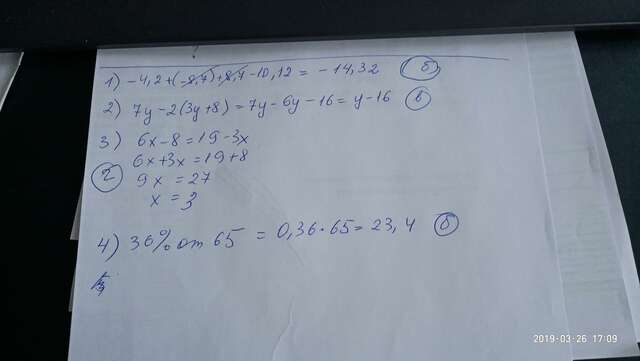 1) -4,2+(-8,7)+8,7-10,12 = -14,32 б
2) 7y-2(3y+8)=7y-6y-16=y-16 в
3) 6x-8=19-3x
6x+3x=19+8
г 9x = 27
x = 3
4) 36% от 65 = 0,36·65=23,4 б
2019-03-26 17:09